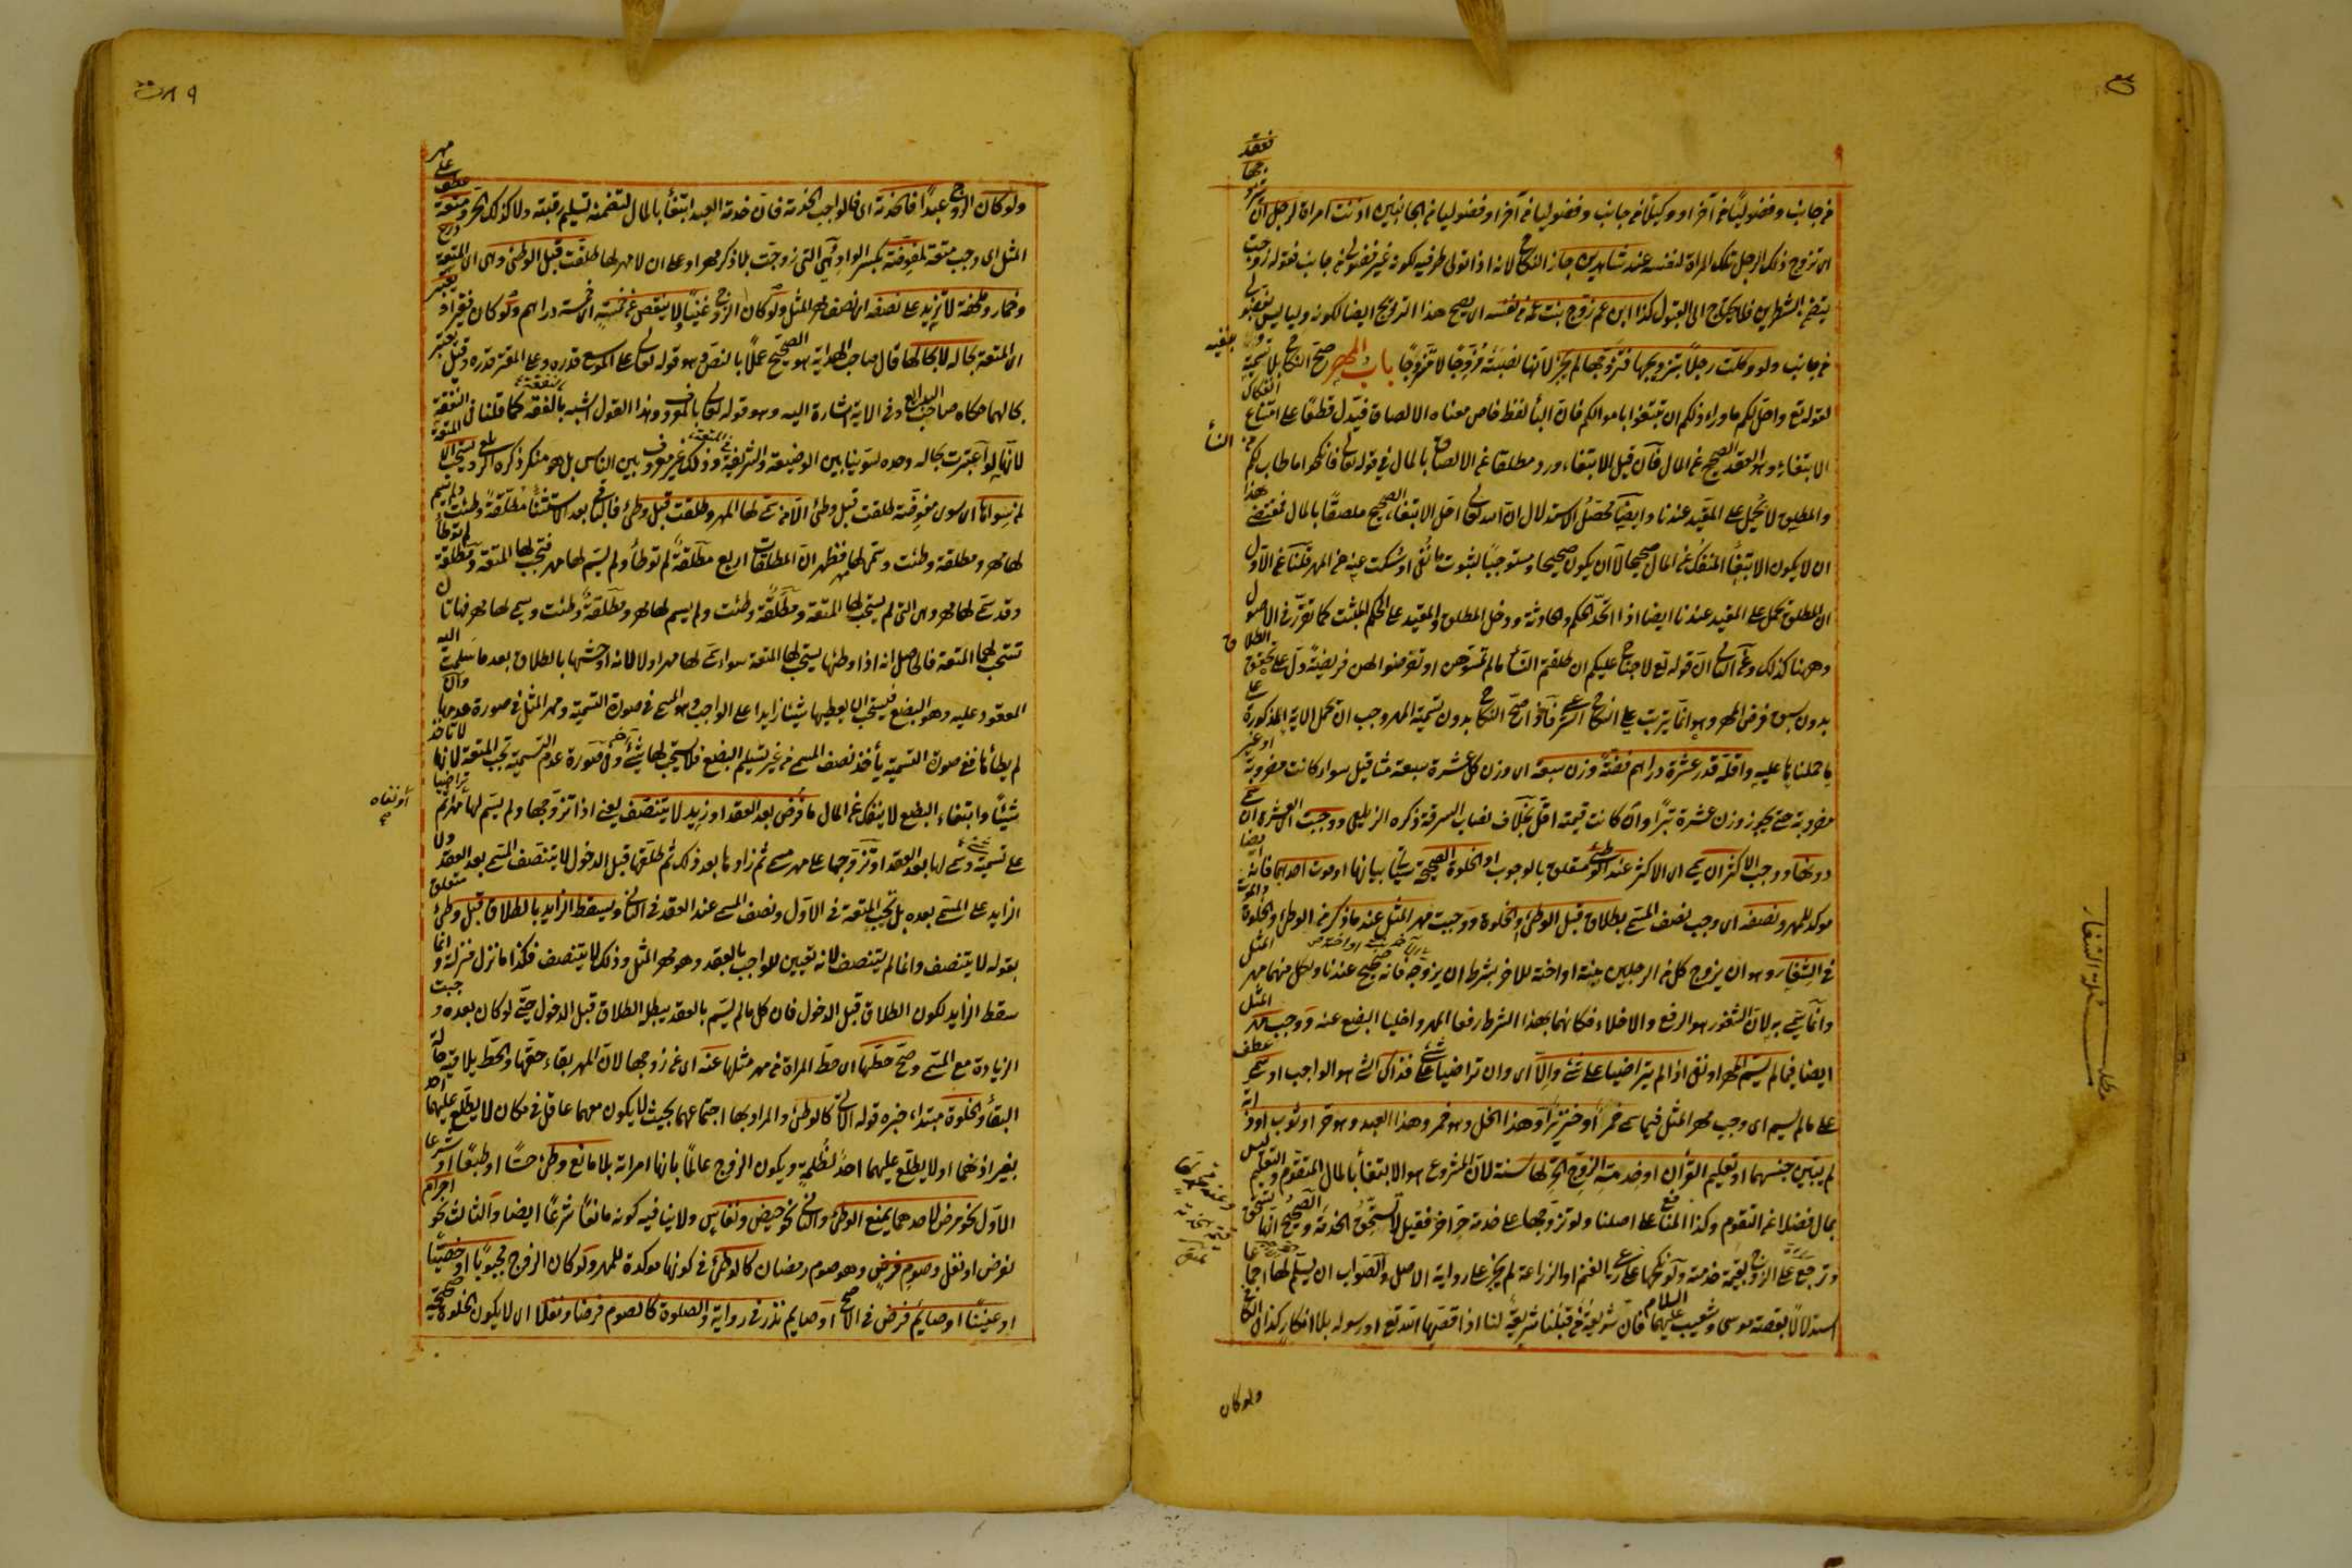 من جانب وفضوليا من آخر او وكيلا من جانب وفضوليا من آخر او فضوليا من الجانبين اذنت امراة لرجل ان
اى تزوج ذلك الرجل تلك المراة لنفسه عند شاهدين جاز النكاح لانه اذا تولى طرفيه لكونه غير فضولى من جانب فقوله زوجت
يتضمن الشطرين فلا يحتاج الى القبول كذا ابن عم زوج بنت عمه من نفسه اى يصح هذا التزويج ايضا لكونه وليا ليس بفضولى
من جانب ولو وكلت رجلا بتزويجها فتزوجها لم يجز لانها نصبته مزوجا لا متزوجا باب المهر صح النكاح بلا تسمية
لقوله تع واحل لكم ما وراء ذلكم ان تبتغوا باموالكم فان الباء لفظ خاص معناه الالصاق فيدل قطعا على امتناع انفكاك
الابتغاء وهو العقد الصحيح عن المال فان قيل الابتغاء ورد مطلقا عن الالصاق بالمال فى قوله تعالى فانكحوا ما طاب لكم من النساء
والمطلق لا يحمل على المقيد عندنا وايضا محصل الاستدلال ان الله تعالى احل الابتغاء الصحيح ملصقا بالمال فمقتضى هذا
ان لا يكون الابتغاء المنفك عن المال صحيحا لا ان يكون صحيحا ومستوجبا لثبوت ما نفى او سكت عنه من المهر قلنا عن الاول
ان المطلق يحمل على المقيد عندنا ايضا اذا اتحد الحكم والحادثة ودخل المطلق والمقيد على الحكم المثبت كما تقرر فى الاصول
وههنا كذلك وعن الثانى ان قوله تع لا جناح عليكم ان طلقتم النساء ما لم تمسوهن او تفرضوا لهن فريضة دل على تحقق الطلاق
بدون سبق فرض المهر وهو انما يترتب على النكاح الشرعى فاذا صح النكاح بدون تسمية المهر وجب ان تحمل الاية المذكورة على
ما حملناها عليه واقله قدر عشرة دراهم فضة وزن سبعة اى وزن كل عشرة سبعة مثاقيل سواء كانت مضروبة او غير
مضروبة حتى يجوز وزن عشرة تبرا وان كانت قيمته اقل بخلاف نصاب السرقة ذكره الزيلعى ووجبت العشرة ان سمى
دونها ووجب الاكثر ان سمى اى الاكثر عند الوطئ متعلق بالوجوب او الخلوة الصحيحة سياتى بيانها او موت احدهما فانه ايضا
موكد للمهر ونصفه اى وجب نصف المسمى بطلاق قبل الوطئ والخلوة ووجبت مهر المثل عند ما ذكر من الوطئ والخلوة والموت
فى الشغار وهو ان يزوج كل من الرجلين بنته او اخته للاخر بشرط ان يزوجه فانه صحيح عندنا ولكل منهما مهر المثل
وانما سمى به لان الشغور هو الرفع والاخلاء فكانهما بهذا الشرط رفعا المهر واخليا البضع عنه ووجب مهر المثل
ايضا فيما لم يسم المهر او نفى اذا لم يتراضيا على شئ والا اى وان تراضيا على شئ فذاك الشئ هو الواجب او سمى عطف
على ما لم يسم اى وجب مهر المثل فيما سمى خمرا او خنزيرا او هذا الخل وهو خمر وهذا العبد وهو حر او ثوب او دابة
لم يتبين جنسهما او تعليم القرآن او خدمة الزوج الحر لها سنة لان المشروع هو الابتغاء بالمال المتقوم والتعليم ليس
بمال فضلا عن التقوم وكذا المنافع على اصلنا ولو تزوجها على خدمة حر آخر فقيل لا تستحق الخدمة والصحيح انها تستحق
وترجع على الزوج بقيمة خدمته ولو نكحها على رعى الغنم او الزراعة لم يجز على رواية الاصل والصواب ان يسلم لها اجماعا
استدلالا بقصة موسى وشعيب عليهما السلام فان شريعة من قبلنا شريعة لنا اذا قصها الله تع او رسوله بلا انكار كذا فى الكافى
ولو كان
مطلب نكاح الشغار
ولو كان الزوج عبدا فالخدمة اى فالواجب الخدمة فان خدمة العبد ابتغاء بالمال لتضمنه تسليم رقبته ولا كذلك الحر ومتعة عطف على مهر
المثل اى وجب متعة لمفوضة بكسر الواو وهى التى زوجت بلا ذكر مهر او على ان لا مهر لها طلقت قبل الوطئ وهى اى المتعة درع
وخمار وملحفة لا تزيد على نصفه اى نصف مهر المثل ولو كان الزوج غنيا ولا ينقص عن خمسة اى خمسة دراهم ولو كان فقيرا وتعتبر
اى المتعة بحاله لا بحالها قال صاحب الهداية هو الصحيح عملا بالنص وهو قوله تعالى على الموسع قدره وعلى المقتر قدره وقيل تعتبر
بحالهما حكاه صاحب البدائع وفى الاية اشارة اليه وهو قوله تعالى بالمعروف وهذا القول اشبه بالفقه كما قلنا فى النفقة
لانها لو اعتبرت بحاله وحده لسوينا بين الوضيعة والشريفة فى المتعة وذلك غير معروف بين الناس بل هو منكر ذكره الزيلعى وتستحب المتعة
لمن سواها اى سوى مفوضة طلقت قبل وطئ الا من سمى لها المهر وطلقت قبل وطئ فالباقى بعد الاستثناء مطلقة وطئت ولم يسم
لها مهر ومطلقة وطئت وسمى لها مهر فظهر ان المطلقات اربع مطلقة لم توطأ ولم يسم لها مهر فتجب لها المتعة ومطلقة لم توطأ
وقد سمى لها مهر وهى التى لم يستحب لها المتعة ومطلقة وطئت ولم يسم لها مهر ومطلقة وطئت وسمى لها مهر فهاتان
تستحب لهما المتعة فالحاصل انه اذا وطئها يستحب لها المتعة سواء سمى لها مهر او لا لانه اوحشها بالطلاق بعد ما سلمت اليه
المعقود عليه وهو البضع فيستحب ان يعطيها شيئا زايدا على الواجب وهو المسمى فى صورة التسمية ومهر المثل فى صورة عدمها وان
لم يطأها ففى صورة التسمية يأخذ نصف المسمى من غير تسليم البضع فلا يستحب لها شئ آخر وفى صورة عدم التسمية تجب المتعة لانها لا تأخذ
شيئا وابتغاء البضع لا ينفك عن المال ما فرض بعد العقد او زيد لا يتنصف يعنى اذا تزوجها ولم يسم لها مهر ثم تراضيا
على تسمية وسمى لها بعد العقد او تزوجها على مهر مسمى ثم زادها بعد ذلك ثم طلقها قبل الدخول لا يتنصف المسمى بعد العقد ولا
الزايد على المسمى بعده بل تجب المتعة فى الاول ونصف المسمى عند العقد فى الثانى ويسقط الزايد بالطلاق قبل وطئ متعلق
بقوله لا يتنصف وانما لم يتنصف لانه تعيين للواجب بالعقد وهو مهر المثل وذلك لا يتنصف فكذا ما نزل منزلته وانما
سقط الزايد لكون الطلاق قبل الدخول فان كل ما لم يسم بالعقد يبطله الطلاق قبل الدخول حتى لو كان بعده وجبت
الزيادة مع المسمى وصح حطها اى حط المراة من مهر مثلها عنه اى عن زوجها لان المهر بقاء حقها والحط يلاقيه حالة
البقاء والخلوة مبتداء خبره قوله الاتى كالوطئ والمراد بها اجتماعهما بحيث لا يكون معهما عاقل فى مكان لا يطلع عليهما احد
بغير اذنهما او لا يطلع عليهما احد لظلمة ويكون الزوج عالما بانها امراته بلا مانع وطئ حسا او طبعا او شرعا
الاول نحو مرض لاحدهما يمنع الوطئ والثانى نحو حيض ونفاس ولا ينافيه كونه مانعا شرعا ايضا والثالث نحو احرام
لفرض او نفل وصوم فرض وهو صوم رمضان كالوطئ فى كونها موكدة للمهر ولو كان الزوج مجبوبا او خصيا
او عنينا او صايم فرض فى الاصح او صايم نذر فى رواية والصلوة كالصوم فرضا ونفلا اى لا يكون الخلوة صحيحة
او نفاه